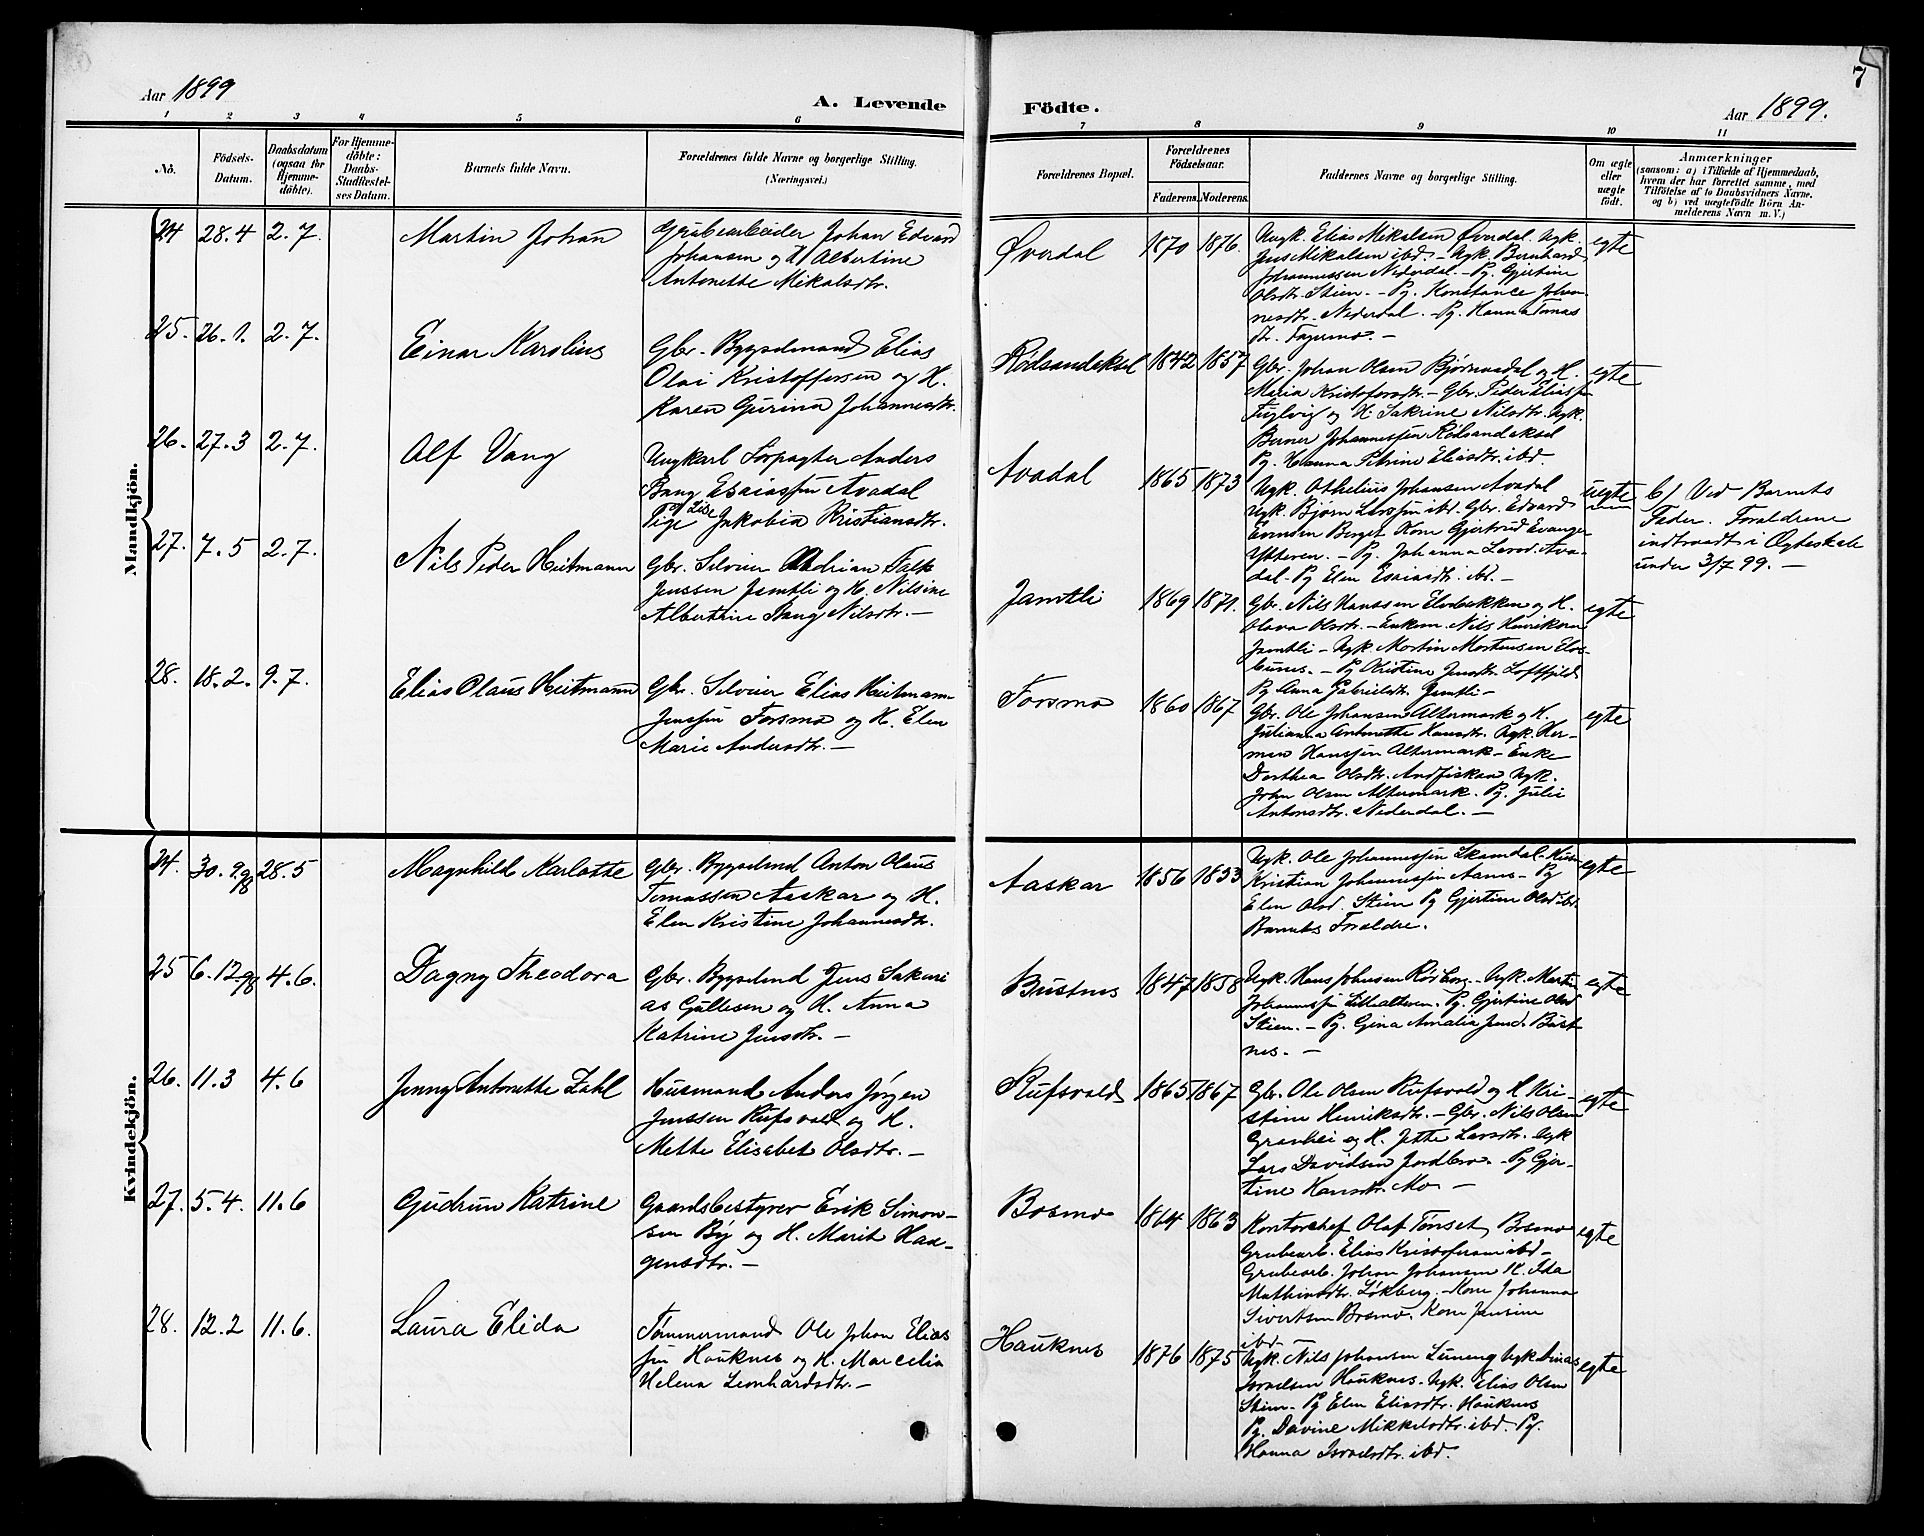 7
Aar 1899
A. Levende
Födte.
Aar 1899.
1 2 3 4 5 6 7 8 9 10 11
No.
Födsels-
Datum.
Daabsdatum
(ogsaa for
Hjemme-
döbte).
For Hjemme-
döbte:
Daabs-
Stadfæstel-
ses Datum.
Barnets fulde Navn.
Forældrenes fulde Navne og borgerlige Stilling.
(Næringsvei.)
Forældrenes Bopæl.
Forældrenes
Fødselsaar.
Faderens. Moderens.
Faddernes Navne og borgerlige Stilling.
Om ægte
eller
uægte
født.
Anmærkninger
(saasom: a) i Tilfælde af Hjemmedaab,
hvem der har forrettet samme, med
Tilföielse af to Daabsvidners Navne,
og b) ved uægtefödte Börn An-
melderens Navn m. V.)
Mandkjön.
24 28.4 2.7. Martin Johan
Grubearbeider Johan Edvard
Johansen og H. Albertine
Antonette Mikalsdtr.
Øverdal 1870 1876.
Ungk. Elias Mikalsen Øverdal. Ugk.
Jens Mikalsen ibd. - Ugk. Bernhard
Johannessen Nederdal. - Pg. Gjertine
Olsdtr. Stien. - Pg. Konstance Johan-
nesdtr. Nederdal. - Pg. Hanna Tomas
dtr. Fagermo. -
egte
25. 26.1. 2.7. Einar Karolius
Gbr. Bygselmand Elias
Olai Kristoffersen og H.
Karen Gurina Johannesdtr.
Rödsandaksel 1842 1857
Gbr. Johan Olsen Bjørnaadal og H.
Maria Kristofersdtr. - Gbr. Peder Eliass.
Fuglvig og H. Sakrine Nilsdtr. Ugk.
Berner Johannessen Rödsandaksel
Pg. Hanna Petrine Eliasdtr. ibd.
egte
26. 27.3 2.7. Alf Vang
Ungkarl Forpagter Anders
Bang Esaiassen Avadal
Pige Lise Jakobia Kristiansdtr.
Avadal 1865 1873
Ugk. Othelius Johansen Avadal
Ugk. Bjørn Larssen ibd. Gbr. Edvard
Evensen Berget Kone Gjertrud Evange
Ytteren. - Pg. Johanna Larsd. Ava-
dal - Pg Elen Esaiasdtr. ibd. -
uegte
b) Ved Barnets
Fader. Forældrene
indtraadt i Ægteskab
under 3/7 99. -
27. 7.5 2.7. Nils Peder Heitmann
Gbr. Selveier Adrian Falk
Jenssen Jamtli og H. Nilsine
Albertine Bang Nilsdtr. -
Jamtli 1869 1871.
Gbr. Nils Hanssen Elvebakken og H.
Olava Olsdtr. - Enkem. Nils Henriksen
Jamtli - Ugk. Martin Mortensen
Pg Kristine Jensdtr. Loftfjeld
Pg. Anna Gabrielsdtr. Jamtli -
egte
28. 18.2. 9.7. Elias Olaus Heitmann
Gbr. Selveier Elias Heitmann
Jenssen Forsmo og H. Elen
Marie Andersdtr. -
Forsmo 1860 1867
Gbr. Ole Johansen Altermark og H.
Julianna Antonette Hansdtr. Ugk. Her-
man Hanssen Altermark - Enke
Dorthea Olsdtr. Andfiskaa Ugk.
John Olsen Altermark. Pg. Julie
Antonsdtr. Nederdal. -
egte
Kvindekjön.
24. 30.9.98 28.5 Magnhild Karlotte
Gbr. Bygselmd Anton Olaus
Tomassen Aaskar og H.
Elen Kristine Johannesdtr.
Aaskar 1856 1853
Ugk. Ole Johannessen Skamdal.
Kristian Johannessen Aanes - Pg
Elen Olsd. Stien Pg Gjertine Olsd ibd.
Barnets Forældre.
egte
25 6.12.98 4.6. Dagny Theodora
Gbr. Bygselmd Jens Sakari
as Gullesen og H. Anna
Katrine Jensdtr. -
Bustnes 1847 1858
Ugk. Hans Johnsen Rösberg - Ugk. Martin
Johannessen Lillealteren. Pg. Gjertine Olsd
Stien. - Pg. Gina Amalia Jensd. Bust-
nes. -
egte
26. 11.3 4.6 Jenny Antonette Zahl
Husmand Anders Jörgen
Jenssen Rufsvold og H.
Mette Elisabet Olsdtr. -
Rufsvold 1865 1867
Gbr. Ole Olsen Rufsvold og H. Kri-
stine Henriksdtr. - Gbr. Nils Olsen
Granhei og H. Jette Larsdtr. Ugk
Lars Davidsen Jordbro. - Pg Gjer-
tine Hansdtr. Mo -
egte
27. 5.4. 11.6 Gudrun Katrine
Gaardsbestyrer Erik Simon-
sen By og H. Marit Haa-
gensdtr. -
Bosmo 1864 1863
Kontorchef Olaf Tönset, Bosmo
Grubearb. Elias Kristofersen ibd -
Grubearb. Johan Johansen H. Ida
Mathiasdtr. Løkberg. - Kone Johanna
Sivertsen Bosmo. Kone Jensine
ibd.
egte
28. 12.2 11.6. Laura Elida
Tømmermand Ole Johan Elias
sen Hauknes og H. Marcelia
Helena Leonhardsdtr. -
Hauknes 1876 1875
Ugk. Nils Johansen Luneng Ugk. Dinas
Israelsen Hauknes. Ugk. Elias Olsen
Stien - Pg Elen Eliasdtr. Hauknes
Pg. Davine Mikkelsdtr. ibd. Pg.
Hanna Israelsdtr. ibd.
egte